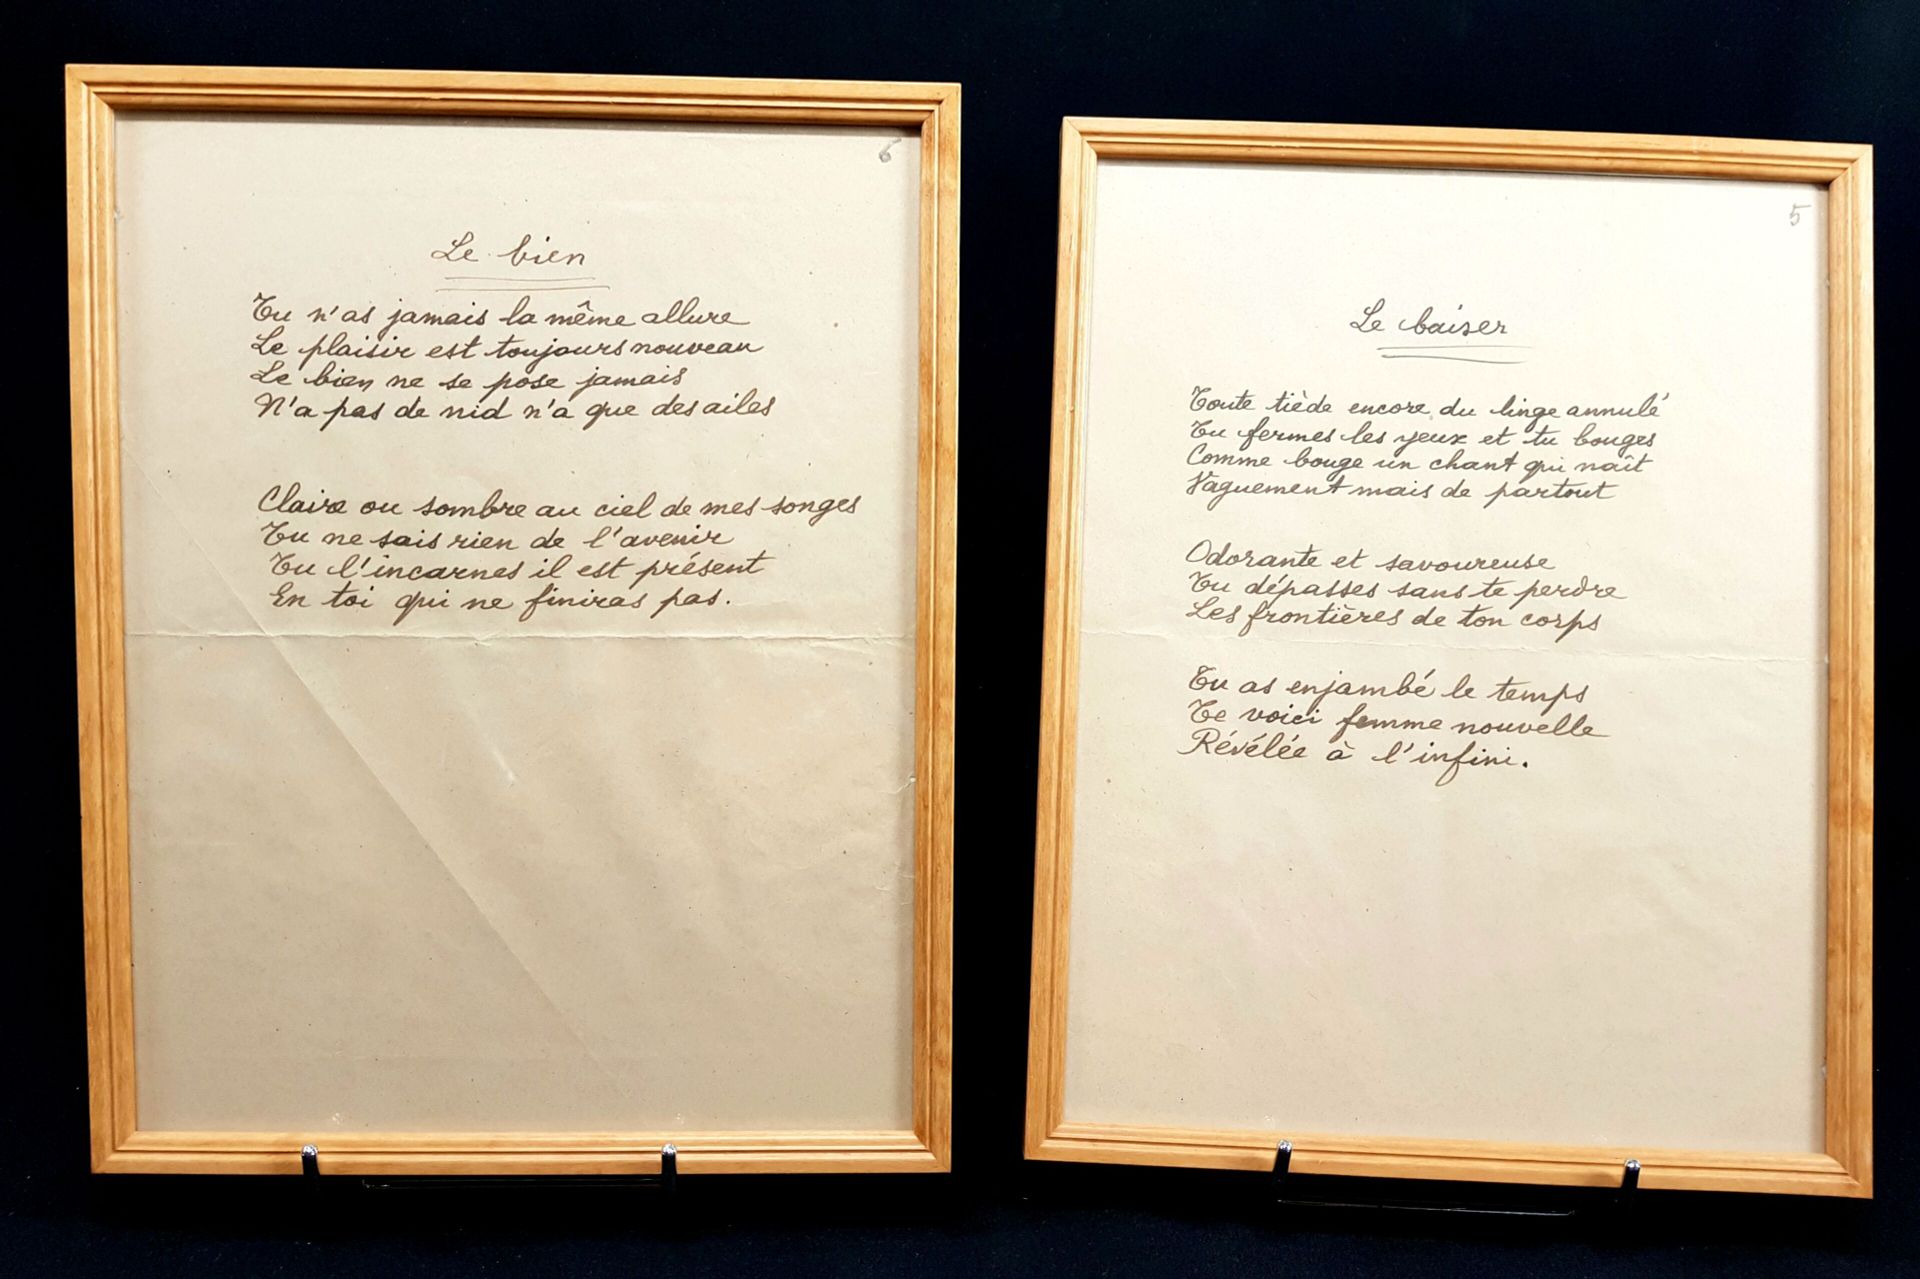 6
Le bien
Tu n'as jamais la même allure
Le plaisir est toujours nouveau
Le bien ne se pose jamais
N'a pas de nid n'a que des ailes
Claire ou sombre au ciel de mes songes
Tu ne sais rien de l'avenir
Tu l'incarnes il est présent
En toi qui ne finiras pas.
5
Le baiser
Toute tiède encore du linge annulé
Tu fermes les yeux et tu bouges
Comme bouge un chant qui naît
Vaguement mais de partout
Odorante et savoureuse
Tu dépasses sans te perdre
Les frontières de ton corps
Tu as enjambé le temps
Te voici femme nouvelle
Révélée à l'infini.